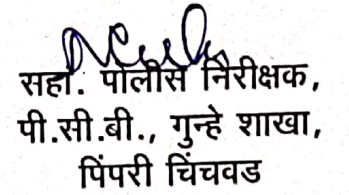 सहा. पोलीस निरीक्षक,
पी.सी.बी., गुन्हे शाखा,
पिंपरी चिंचवड